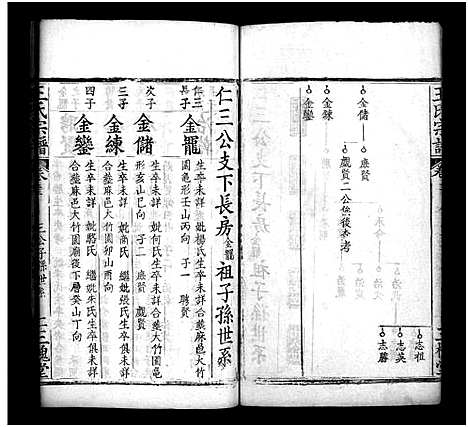 王氏宗譜
金儲
應賢
戲賢二公無後參考
金鍊
金鑾
志祖
志英
志勝
三槐堂
仁三公支下長房金龍祖子孫世系
仁三公長子
金龍
生卒未詳 妣楊氏生卒未詳合塟麻邑大竹園
龜形壬山丙向 子一 聘賢
次子
金儲
生卒未詳 妣何氏生卒未詳合塟大竹園龜
形亥山巳向 子二 應賢 戲賢
三子
金鍊
生卒未詳 妣尚氏 繼妣張氏生卒俱未詳
合塟麻邑大竹園卯山酉向
四子
金鑾
生卒未詳 妣駱氏 繼妣朱氏生卒俱未詳
合塟麻邑大竹園廟後下層癸山丁向
王氏宗譜
三公子孫世系
三槐堂